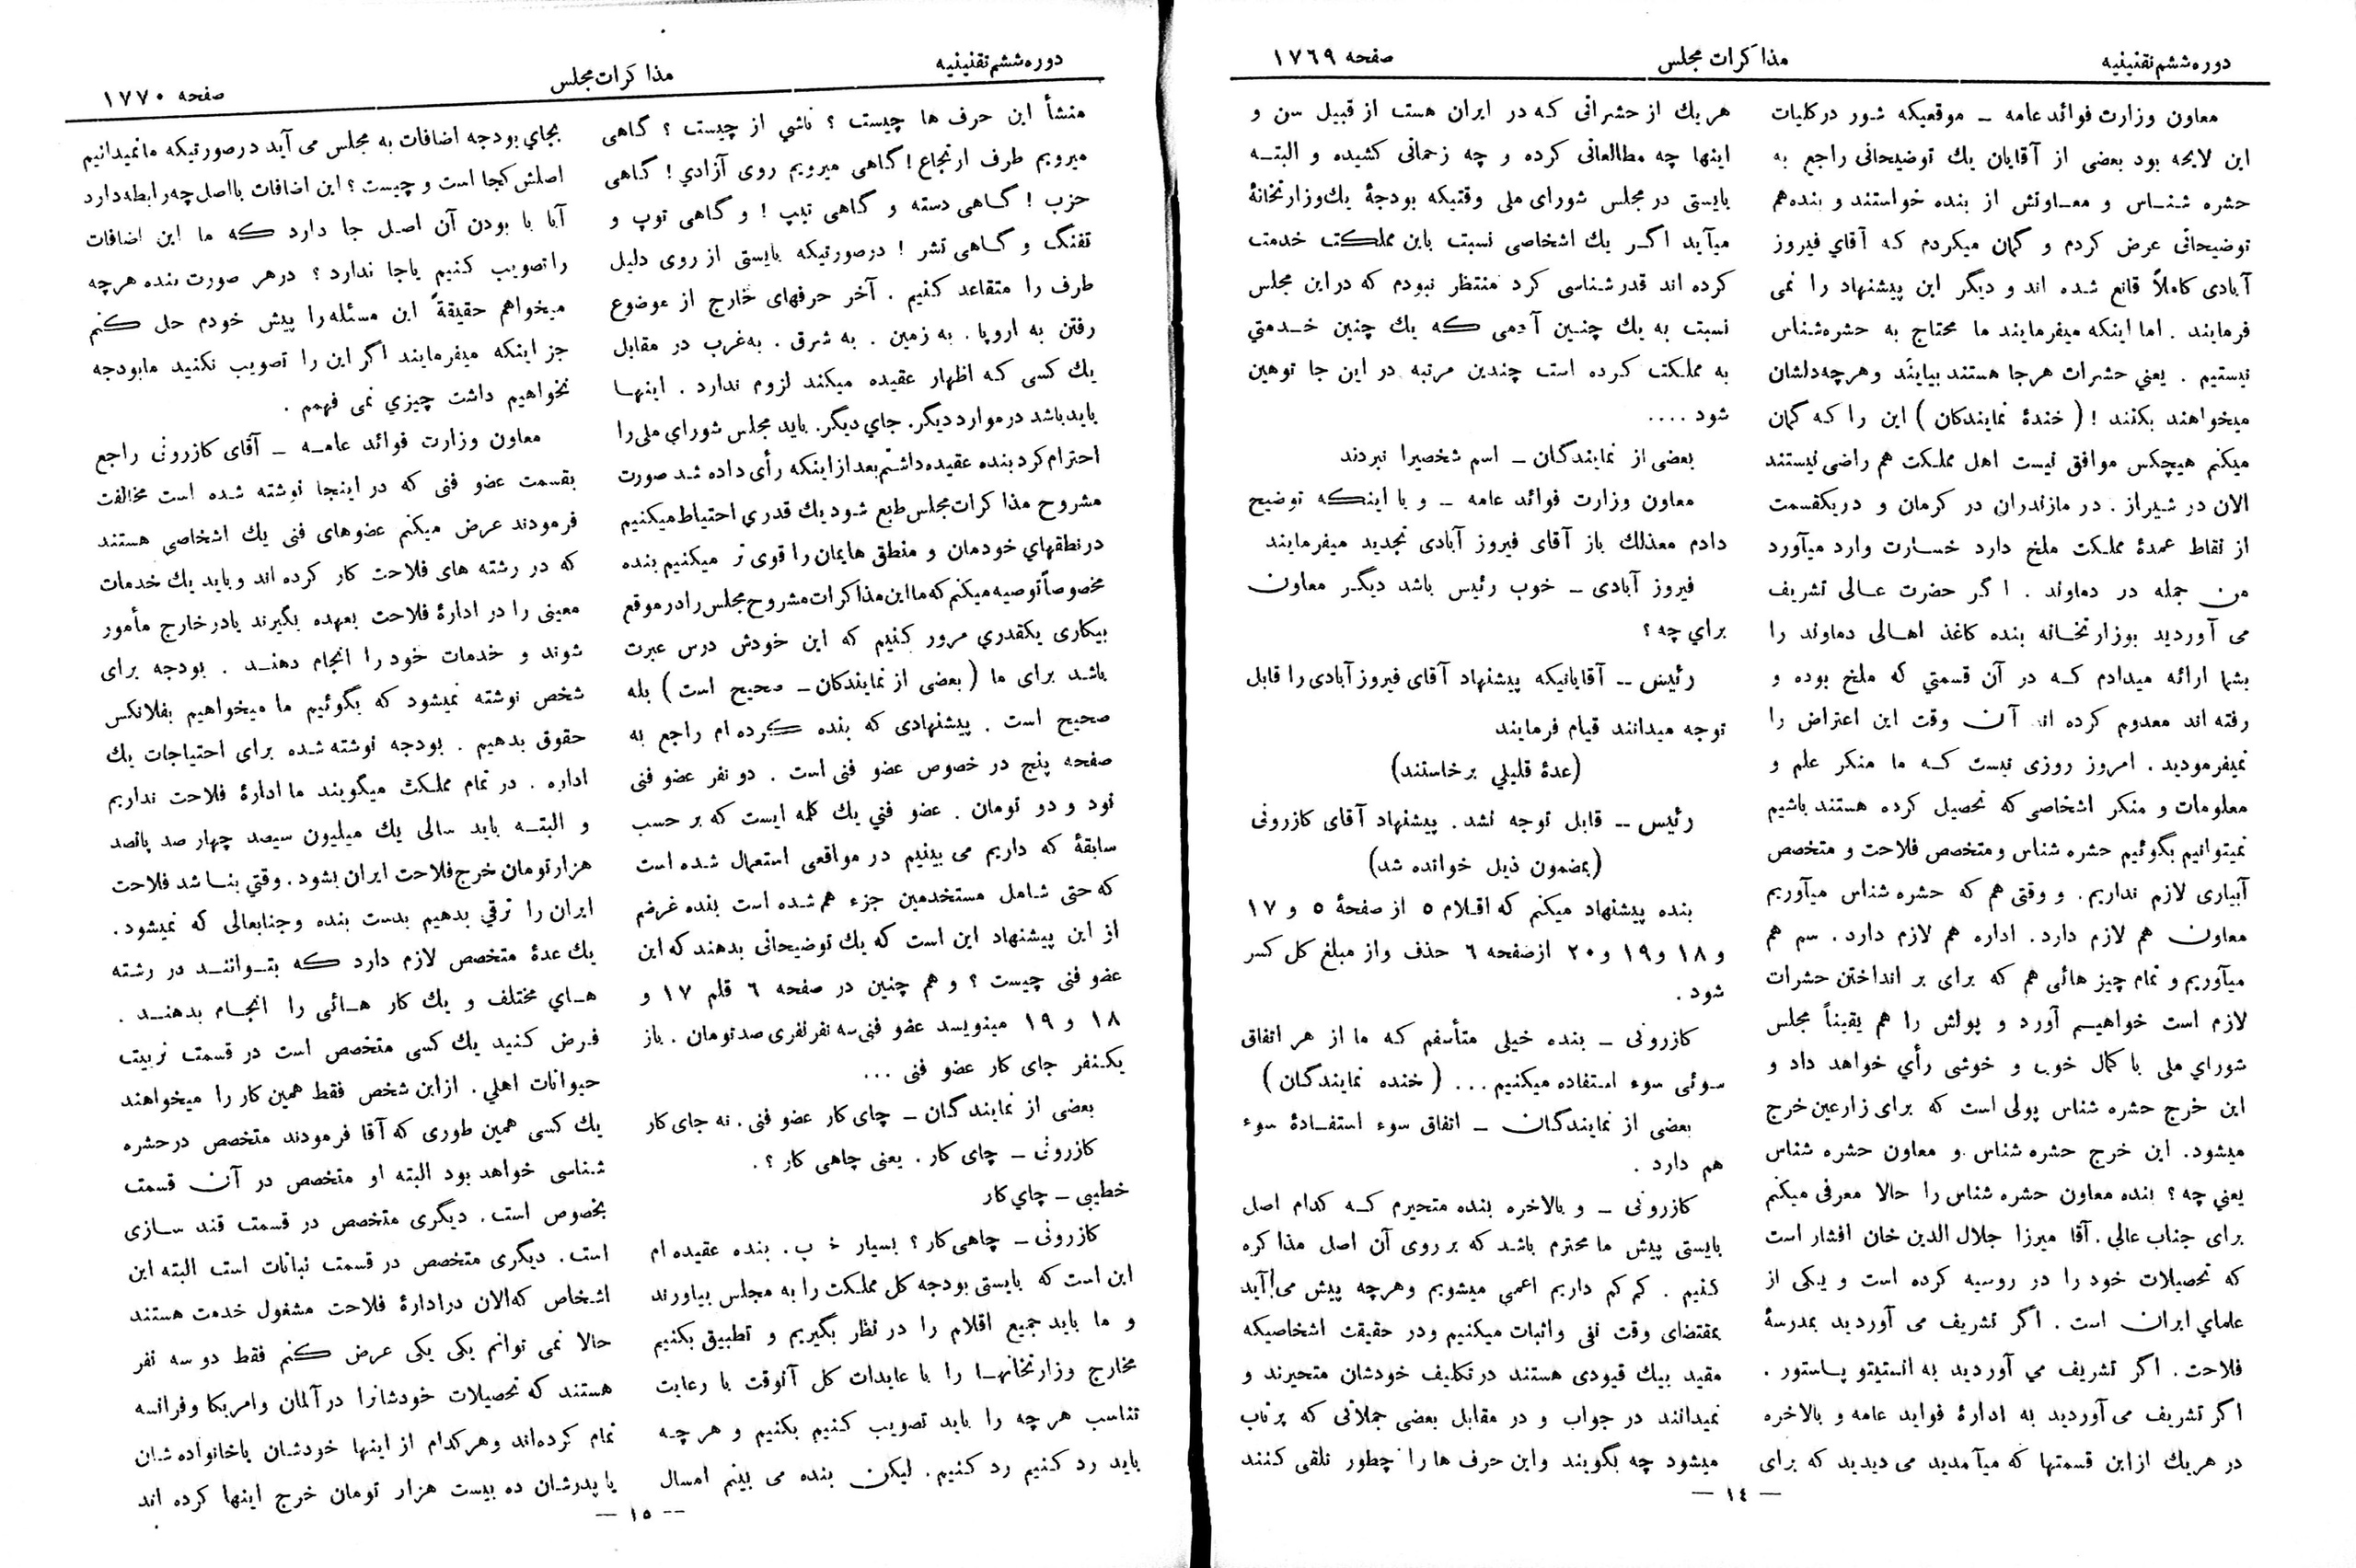 دوره ششم تقنینیه
مذاکرات مجلس
صفحه ۱۷۶۹
معاون وزارت فوائد عامه ـ موقعیکه شور در کلیات
این لایحه بود بعضی از آقایان یك توضیحاتی راجع به
حشره شناس و معاونش از بنده خواستند و بنده هم
توضیحاتی عرض کردم و گمان میکردم که آقای فیروز
آبادی کاملاً قانع شده اند و دیگر این پیشنهاد را نمی
فرمایند . اما اینکه میفرمایند ما محتاج به حشره شناس
نیستیم . یعنی حشرات هرجا هستند بیایند و هرچه دلشان
میخواهند بکنند ! ( خندهٔ نمایندکان ) این را که گمان
میکنم هیچکس موافق نیست اهل مملکت هم راضی نیستند
الان در شیراز . در مازندران در کرمان و دریکقسمت
از نقاط عمدهٔ مملکت ملخ دارد خسارت وارد میآورد
من جمله در دماوند . اگر حضرت عالی تشریف
می آوردید بوزارتخانه بنده کاغذ اهالی دماوند را
بشما ارائه میدادم که در آن قسمتی که ملخ بوده و
رفته اند معدوم کرده اند آن وقت این اعتراض را
نمیفرمودید . امروز روزی نیست که ما منکر علم و
معلومات و منکر اشخاصی که تحصیل کرده هستند باشیم
نمیتوانیم بگوئیم حشره شناس و متخصص فلاحت و متخصص
آبیاری لازم نداریم . و وقتی هم که حشره شناس میآوریم
معاون هم لازم دارد . اداره هم لازم دارد . سم هم
میآوریم و تمام چیز هائی هم که برای بر انداختن حشرات
لازم است خواهیم آورد و پولش را هم یقیناً مجلس
شورای ملی با کمال خوبی و خوشی رأی خواهد داد و
این خرج حشره شناس پولی است که برای زارعین خرج
میشود . این خرج حشره شناس و معاون حشره شناس
یعنی چه ؟ بنده معاون حشره شناس را حالا معرفی میکنم
برای جناب عالی . آقا میرزا جلال الدین خان افشار است
که تحصیلات خود را در روسیه کرده است و یکی از
علمای ایران است . اگر تشریف می آوردید بمدرسهٔ
فلاحت . اگر تشریف می آوردید به انستیتو پاستور .
اگر تشریف می آوردید به ادارهٔ فواید عامه و بالاخره
در هریك از این قسمتها که میآمدید می دیدید که برای
هریك از حشراتی که در ایران هست از قبیل سن و
اینها چه مطالعاتی کرده و چه زحماتی کشیده و البته
بایستی در مجلس شورای ملی وقتیکه بودجهٔ یك وزارتخانهٔ
میآید اگر یك اشخاصی نسبت باین مملکت خدمت
کرده اند قدر شناسی کرد منتظر نبودم که در این مجلس
نسبت به یك چنین آدمی که یك چنین خدمتی
به مملکت کرده است چندین مرتبه در این جا توهین
شود . . . .
بعضی از نمایندگان ـ اسم شخصیرا نبردند
معاون وزارت فوائد عامه ـ و با اینکه توضیح
دادم معذلك باز آقای فیروز آبادی تجدید میفرمایند
فیروز آبادی ـ خوب رئیس باشد دیگر معاون
برای چه ؟
رئیس ـ آقایانیکه پیشنهاد آقای فیروز آبادی را قابل
توجه میدانند قیام فرمایند
(عدهٔ قلیلی برخاستند)
رئیس ـ قابل توجه نشد . پیشنهاد آقای کازرونی
(بمضمون ذیل خوانده شد)
بنده پیشنهاد میکنم که اقلام ۵ از صفحهٔ ۵ و ۱۷
و ۱۸ و ۱۹ و ۲۰ از صفحه ۶ حذف و از مبلغ کل کسر
شود .
کازرونی ـ بنده خیلی متأسفم که ما از هر اتفاق
سوئی سوء استفاده میکنیم . . . ( خنده نمایندگان )
بعضی از نمایندگان ـ اتفاق سوء استفادهٔ سوء
هم دارد .
کازرونی ـ و بالاخره بنده متحیرم که کدام اصل
بایستی پیش ما محترم باشد که بر روی آن اصل مذاکره
کنیم . کم کم داریم اعمی میشویم و هرچه پیش می آید
بمقتضای وقت نفی و اثبات میکنیم و در حقیقت اشخاصیکه
مقید بیك قیودی هستند در تکلیف خودشان متحیرند و
نمیدانند در جواب و در مقابل بعضی جملاتی که پرتاب
میشود چه بگویند و این حرف ها را چطور تلقی کنند
— ۱۴ —
دوره ششم تقنینیه
مذاکرات مجلس
صفحه ۱۷۷۰
منشأ این حرف ها چیست ؟ ناشی از چیست ؟ گاهی
میرویم طرف ارتجاع ! گاهی میرویم روی آزادی ! گاهی
حزب ! گاهی دسته و گاهی تیپ ! و گاهی توپ و
تفنگ و گاهی تشر ! درصورتیکه بایستی از روی دلیل
طرف را متقاعد کنیم . آخر حرفهای خارج از موضوع
رفتن به اروپا . به زمین . به شرق . به غرب در مقابل
یك کسی که اظهار عقیده میکند لزوم ندارد . اینها
باید باشد در موارد دیگر. جای دیگر. باید مجلس شورای ملی را
احترام کرد بنده عقیده داشتم بعد از اینکه رأی داده شد صورت
مشروح مذاکرات مجلس طبع شود یك قدری احتیاط میکنیم
در نطقهای خودمان و منطق هایمان را قوی تر میکنیم بنده
مخصوصاً توصیه میکنم که ما این مذاکرات مشروح مجلس را در موقع
بیکاری یکقدری مرور کنیم که این خودش درس عبرت
باشد برای ما ( بعضی از نمایندکان ـ صحیح است ) بله
صحیح است . پیشنهادی که بنده کرده ام راجع به
صفحه پنج در خصوص عضو فنی است . دو نفر عضو فنی
نود و دو تومان . عضو فنی یك کلمه ایست که بر حسب
سابقهٔ که داریم می بینیم در مواقعی استعمال شده است
که حتی شامل مستخدمین جزء هم شده است بنده غرضم
از این پیشنهاد این است که یك توضیحاتی بدهند که این
عضو فنی چیست ؟ و هم چنین در صفحه ۶ قلم ۱۷ و
۱۸ و ۱۹ مینویسد عضو فنی سه نفر نفری صد تومان . باز
یکنفر جای کار عضو فنی . . .
بعضی از نمایندگان ـ چای کار عضو فنی . نه جای کار
کازرونی ـ چای کار . یعنی چاهی کار ؟ .
خطیبی ـ چای کار
کازرونی ـ چاهی کار ؟ بسیار خ ب . بنده عقیده ام
این است که بایستی بودجه کل مملکت را به مجلس بیاورند
و ما باید جمیع اقلام را در نظر بگیریم و تطبیق بکنیم
مخارج وزارتخانها را با عایدات کل آنوقت با رعایت
تناسب هر چه را باید تصویب کنیم بکنیم و هر چه
باید رد کنیم رد کنیم . لیکن بنده می بینم امسال
بجای بودجه اضافات به مجلس می آید در صورتیکه ما نمیدانیم
اصلش کجا است و چیست ؟ این اضافات با اصل چه رابطه دارد
آیا با بودن آن اصل جا دارد که ما این اضافات
را تصویب کنیم یا جا ندارد ؟ در هر صورت بنده هرچه
میخواهم حقیقةً این مسئله را پیش خودم حل کنم
جز اینکه میفرمایند اگر این را تصویب نکنید ما بودجه
نخواهیم داشت چیزی نمی فهمم .
معاون وزارت فوائد عامه ـ آقای کازرونی راجع
بقسمت عضو فنی که در اینجا نوشته شده است مخالفت
فرمودند عرض میکنم عضوهای فنی یك اشخاصی هستند
که در رشته های فلاحت کار کرده اند و باید یك خدمات
معینی را در ادارهٔ فلاحت بعهده بگیرند یا در خارج مأمور
شوند و خدمات خود را انجام دهند . بودجه برای
شخص نوشته نمیشود که بگوئیم ما میخواهیم بفلانکس
حقوق بدهیم . بودجه نوشته شده برای احتیاجات یك
اداره . در تمام مملکت میگویند ما ادارهٔ فلاحت نداریم
و البته باید سالی یك میلیون سیصد چهار صد پانصد
هزار تومان خرج فلاحت ایران بشود . وقتی بنا شد فلاحت
ایران را ترقی بدهیم بدست بنده و جنابعالی که نمیشود .
یك عدهٔ متخصص لازم دارد که بتوانند در رشته
های مختلف و یك کار هائی را انجام بدهند .
فرض کنید یك کسی متخصص است در قسمت تربیت
حیوانات اهلی . از این شخص فقط همین کار را میخواهند
یك کسی همین طوری که آقا فرمودند متخصص در حشره
شناسی خواهد بود البته او متخصص در آن قسمت
بخصوص است . دیگری متخصص در قسمت قند سازی
است . دیگری متخصص در قسمت نباتات است البته این
اشخاص که الان در ادارهٔ فلاحت مشغول خدمت هستند
حالا نمی توانم یکی یکی عرض کنم فقط دو سه نفر
هستند که تحصیلات خودشانرا در آلمان و امریکا و فرانسه
تمام کرده اند و هرکدام از اینها خودشان یا خانواده شان
یا پدرشان ده بیست هزار تومان خرج اینها کرده اند
— ۱۵ —